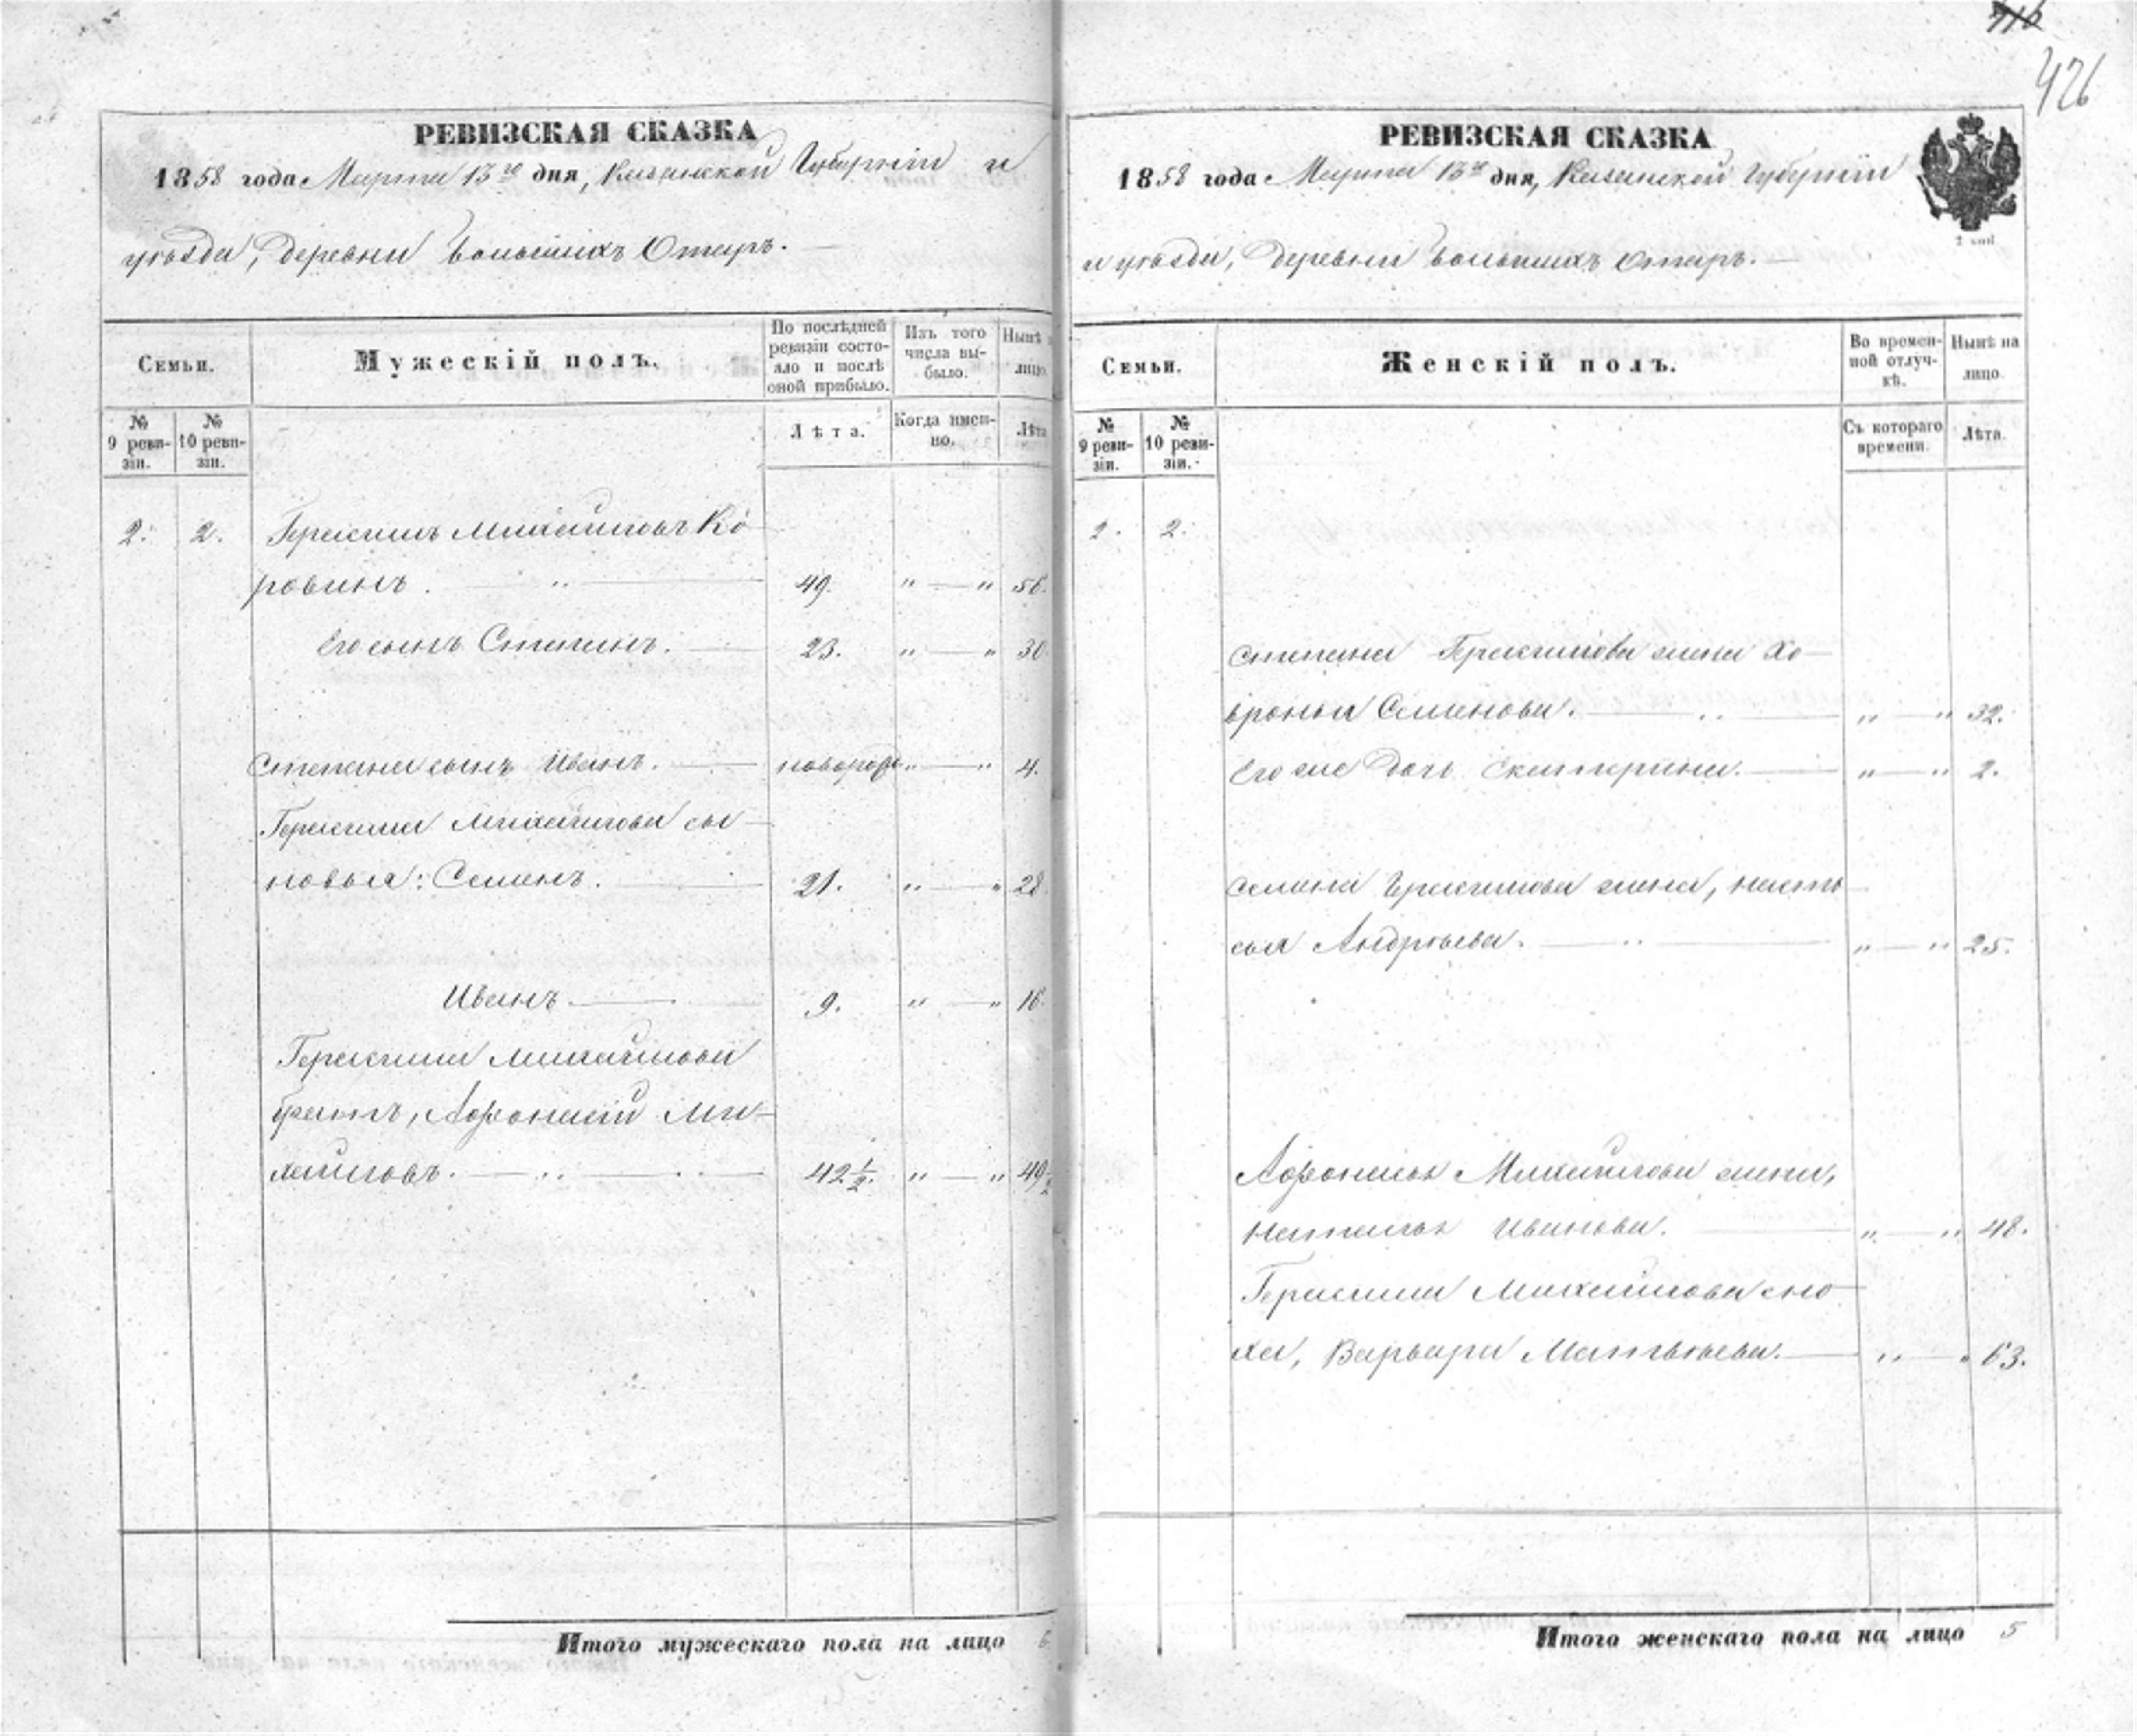 416
426
РЕВИЗСКАЯ СКАЗКА
1858 года Марта 13го дня, Казанской Губерніи и
уѣзда, деревни Большихъ Отаръ.
Семьи.
Мужескій полъ.
По послѣдней ревизіи состояло и послѣ оной прибыло.
Изъ того числа выбыло.
Нынѣ
лицо.
№ 9 ревизіи.
№ 10 ревизіи.
Лѣта.
Когда именно.
Лѣта
2. 2. Герасимъ Михайловъ Ко-
ровинъ. 49. " — " 56.
Его сынъ Степанъ. 23. " — " 30
Степана сынъ Иванъ. новорож " — " 4.
Герасима Михайлова сы-
новья: Семенъ. 21. " — " 28
Иванъ. 9. " — " 16.
Герасима Михайлова
братъ, Афонасій Ми-
хайловъ. 42 1/2. " — " 49 1/2
Итого мужескаго пола на лицо 6
РЕВИЗСКАЯ СКАЗКА
1858 года Марта 13го дня, Казанской Губерніи
2 коп.
и уѣзда, деревни Большихъ Отаръ.
Семьи.
Женскій полъ.
Во временной отлучкѣ.
Нынѣ на лицо.
№ 9 ревизіи.
№ 10 ревизіи.
Съ котораго времени.
Лѣта.
2. 2.
Степана Герасимова жена Хо-
вронья Семенова. " — " 32.
Его же дочь Екатерина. " — " 2.
Семена Герасимова жена, Наста
сья Андрѣева. " — " 25.
Афонасья Михайлова жена,
Наталья Иванова. " — " 48.
Герасима Михайлова сно-
ха, Варвара Матвѣева. " — " 63.
Итого женскаго пола на лицо 5